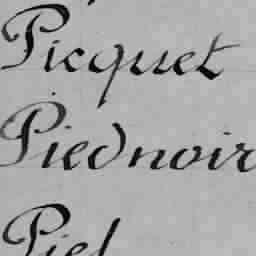 Picquet
Piednoir
Piel